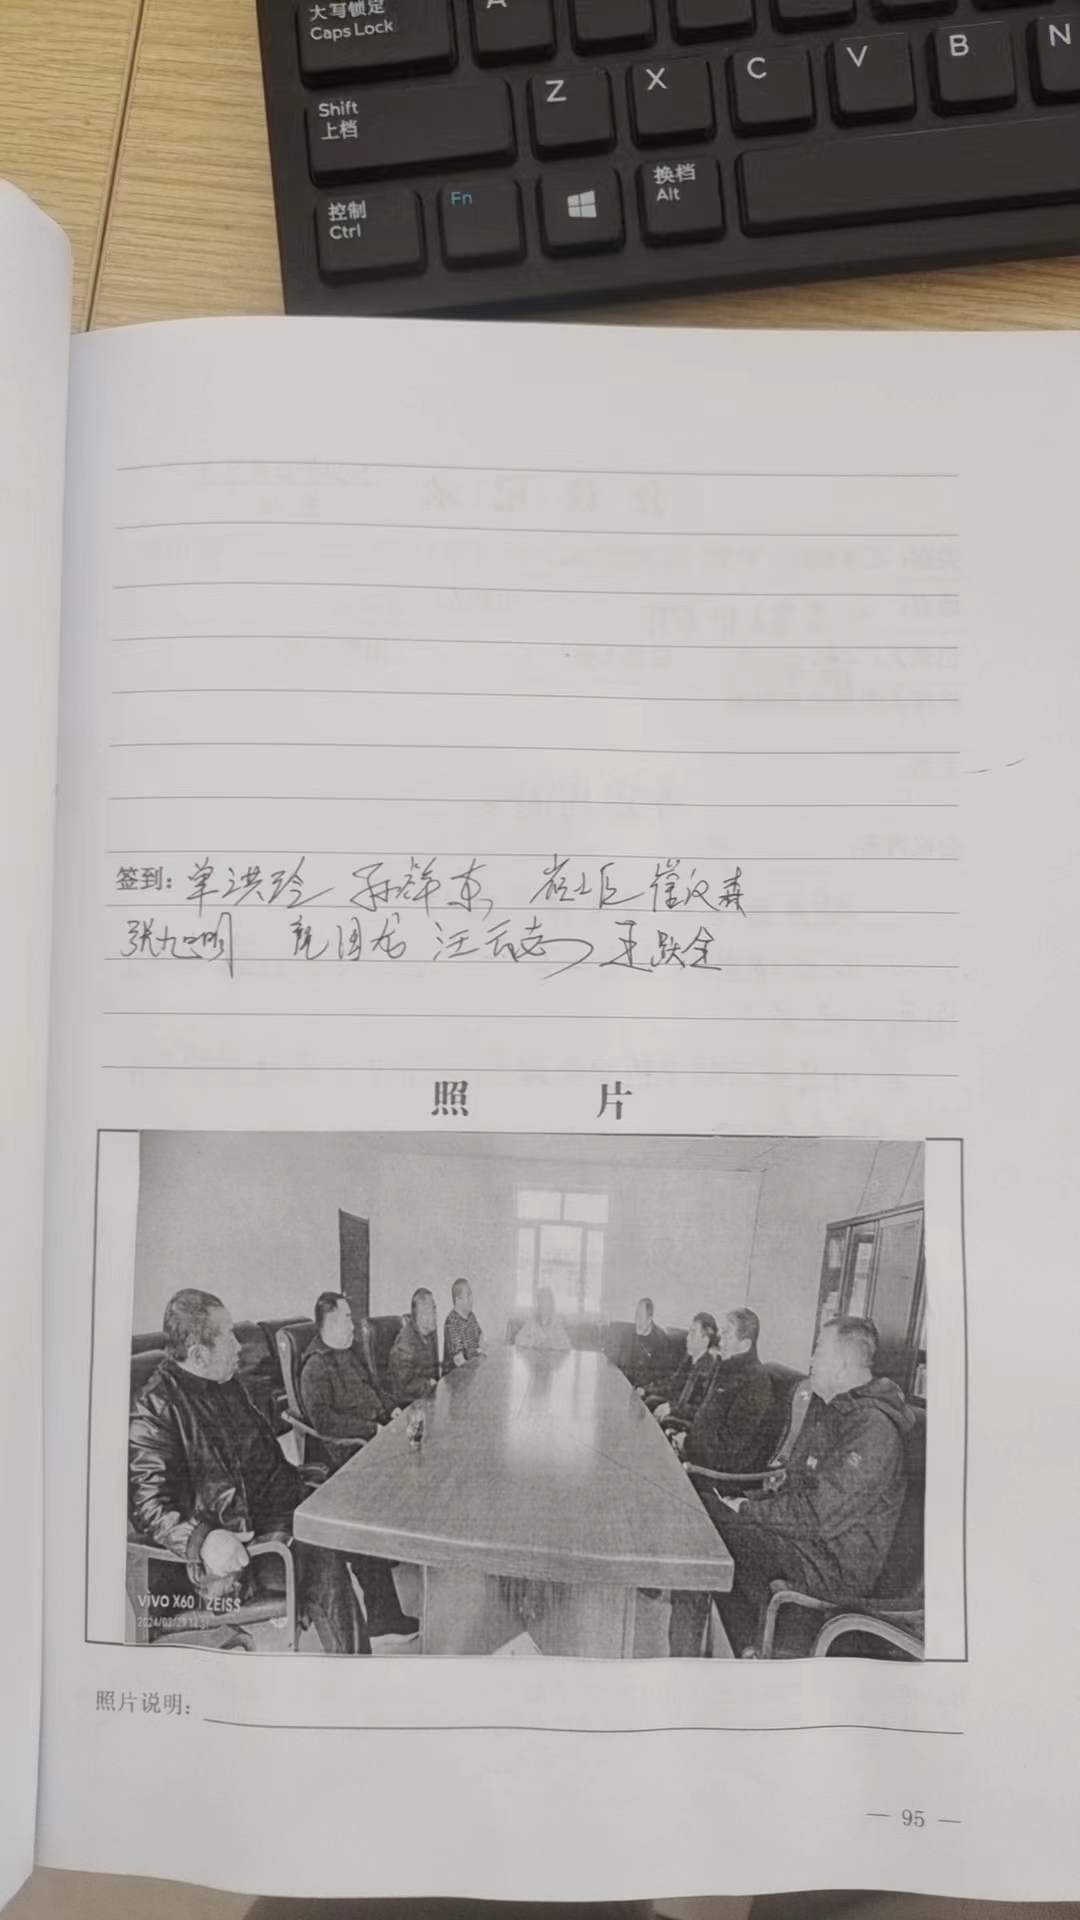 大写锁定
Caps Lock
A
Shift
上档
Z
X
C
V
B
N
控制
Ctrl
Fn
换档
Alt
签到：单洪玲 孙祥东 崔汉森
张九明 龙 汪云志 王跃全
照 片
vivo X60 | ZEISS
2024/03/29 14:31
照片说明：
— 95 —